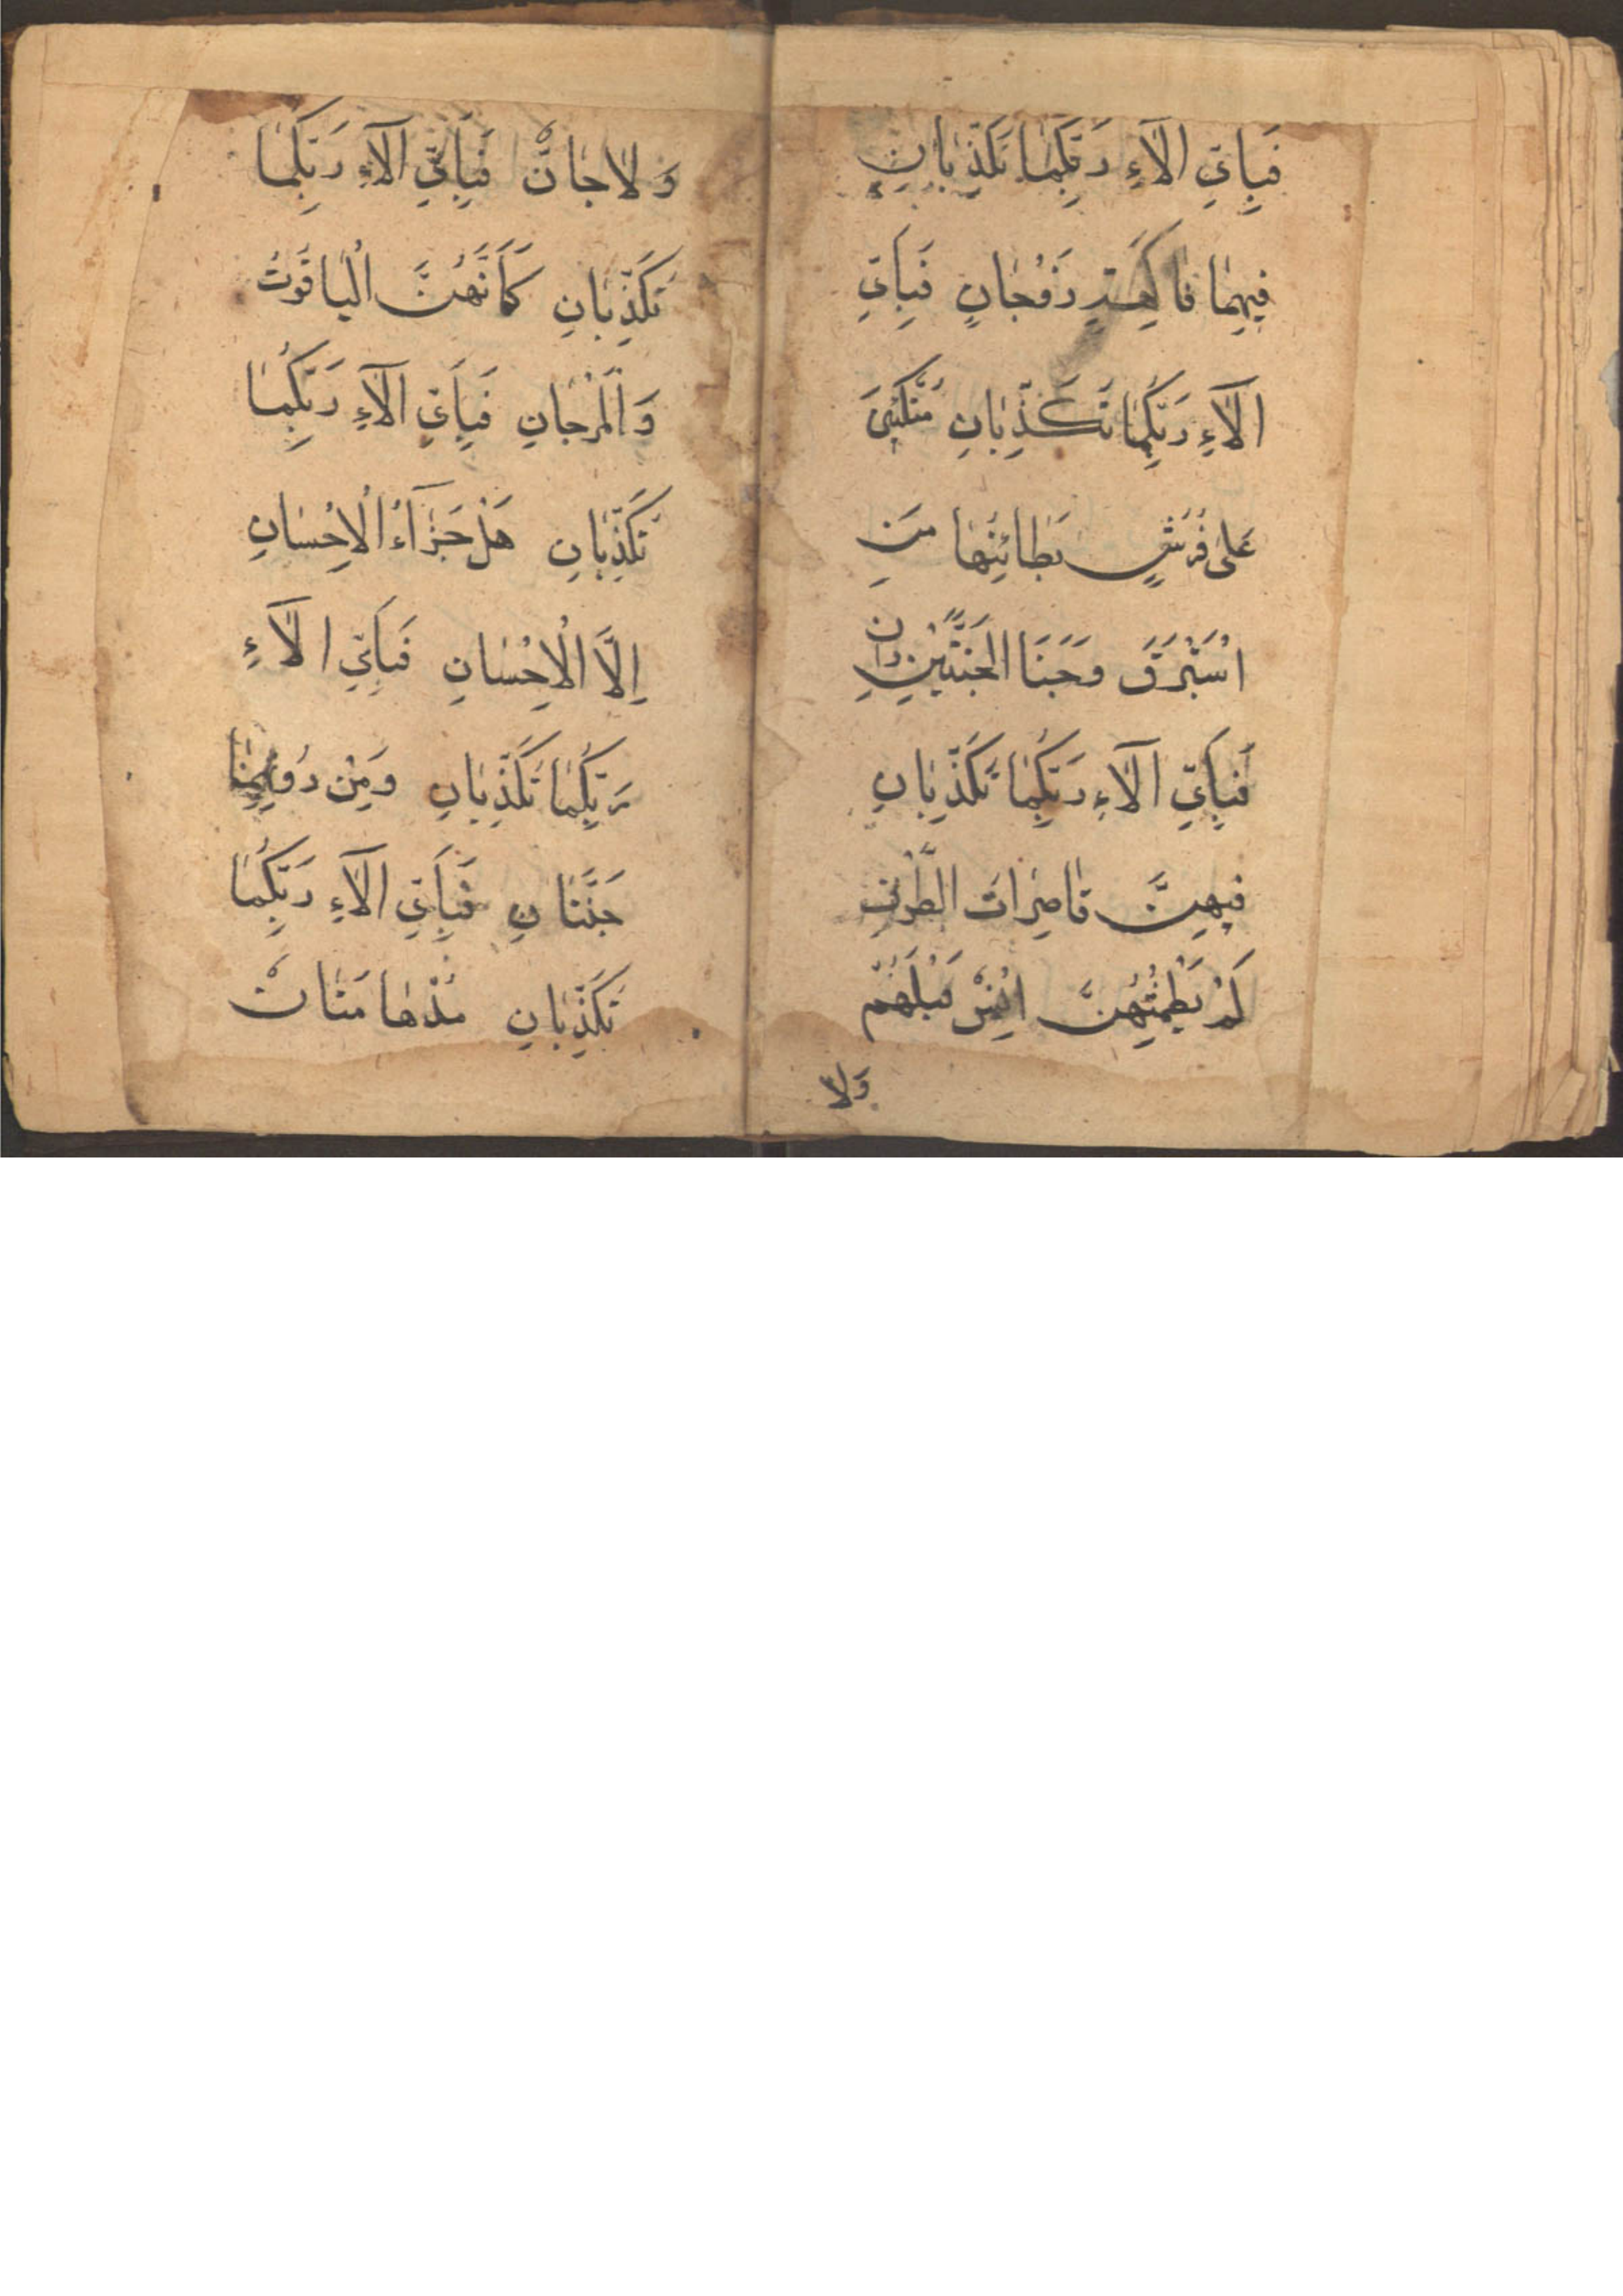 فَبِاَيِّ الَآءِ رَبِّكُمَا تُكَذِّبَانِ
فِيهِمَا فَاكِهَةٍ زَوْجَانِ فَبِاَيِّ
الَآءِ رَبِّكُمَا تُكَذِّبَانِ مُتَّكِئِينَ
عَلَى فُرُشٍ بَطَائِنُهَا مِنْ
اسْتَبْرَقَ وَجَنَا الْجَنَّتَيْنِ دَانٍ
فَبِاَيِّ الَآءِ رَبِّكُمَا تُكَذِّبَانِ
فِيهِنَّ قَاصِرَاتُ الطَّرْفِ
لَمْ يَطْمِثْهُنَّ اِنْسٌ قَبْلَهُمْ
وَلَا
وَلَا جَانٌّ فَبِاَيِّ الَآءِ رَبِّكُمَا
تُكَذِّبَانِ كَاَنَّهُنَّ الْيَاقُوتُ
وَالْمَرْجَانِ فَبِاَيِّ الَآءِ رَبِّكُمَا
تُكَذِّبَانِ هَلْ جَزَآءُ الْاِحْسَانِ
اِلَّا الْاِحْسَانِ فَبِاَيِّ الَآءِ
رَبِّكُمَا تُكَذِّبَانِ وَمِنْ دُونِهِمَا
جَنَّتَانِ فَبِاَيِّ الَآءِ رَبِّكُمَا
تُكَذِّبَانِ مُدْهَامَّتَانْ